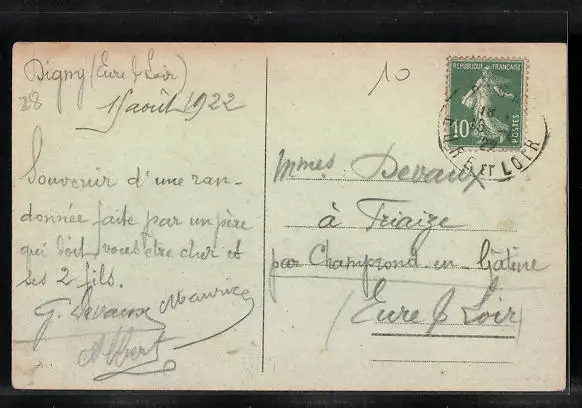 Digny (Eure & Loir)
28
15 août 1922
Souvenir d'une ran-
donnée faite par un père
qui doit vous être cher et
ses 2 fils.
G. Devaux Maurice
Albert
10
REPUBLIQUE FRANÇAISE
10
POSTES
EURE ET LOIR
Mmes Devaux
à Friaize
par Champrond-en-Gâtine
(Eure & Loir)